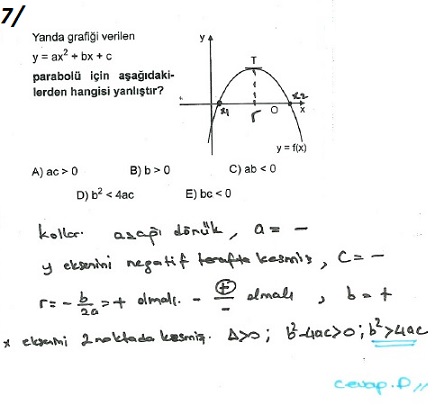 7/
Yanda grafiği verilen
y = ax² + bx + c
parabolü için aşağıdaki-
lerden hangisi yanlıştır?
y
T
x1
r
O
x2
x
y = f(x)
A) ac > 0 B) b > 0 C) ab < 0
D) b² < 4ac E) bc < 0
kollar aşağı dönük, a = -
y eksenini negatif tarafta kesmiş, c = -
r = -b/2a = + olmalı. - +/- olmalı, b = +
x eksenini 2 noktada kesmiş. Δ>0; b²-4ac>0; b²>4ac
cevap.D //